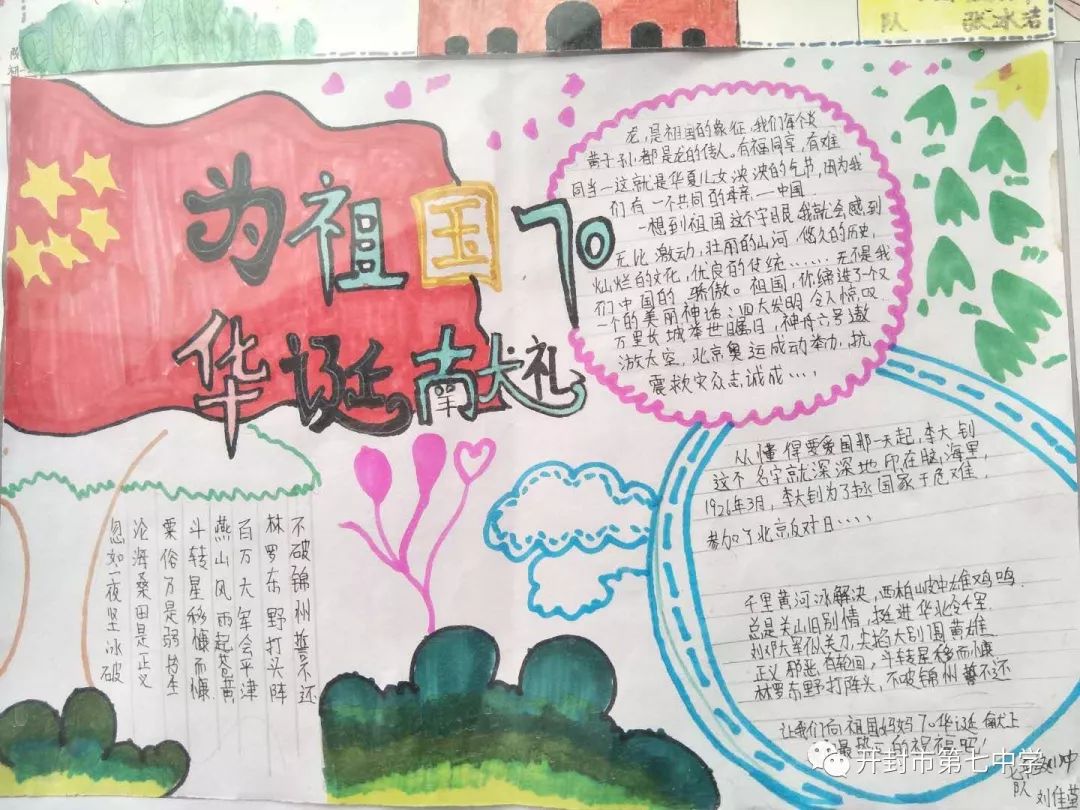 队 张冰洁
为祖国70
华诞献礼
龙,是祖国的象征,我们每个炎
黄子孙都是龙的传人。有福同享,有难
同当一这就是华夏儿女泱泱的气节,因为我
们有一个共同的母亲一中国
一想到祖国这个字眼,我就会感到
无比激动,壮丽的山河,悠久的历史,
灿烂的文化,优良的传统……无不是我
们中国的骄傲。祖国,你缔造了一个又
一个的美丽神话:四大发明令人惊叹
万里长城举世瞩目,神舟六号遨
游太空,北京奥运成动举办,抗
震救灾众志诚成….
从懂得要爱国那一天起,李大钊
这个名字就深深地印在脑海里,
1926年3月,李大钊为了拯国家于危难,
参加了北京反对日….
不破锦州誓不还
林罗东野打头阵
百万大军会平津
燕山风雨起苍黄
斗转星移慷而慷
粟俗万是弱转生
沦海桑田是正义
忽如一夜坚冰破
千里黄河冰解决,西柏坡中雄鸡鸣
总是关山旧别情,挺进华北会千军
刘邓大军似关刀,尖掐大别围黄雄
正义邪恶有轮回,斗转星移而慷
林罗东野打阵头,不破锦州誓不还
让我们向祖国妈妈70华诞献上
的祝福吧!
开封市第七中学
队 刘佳莹